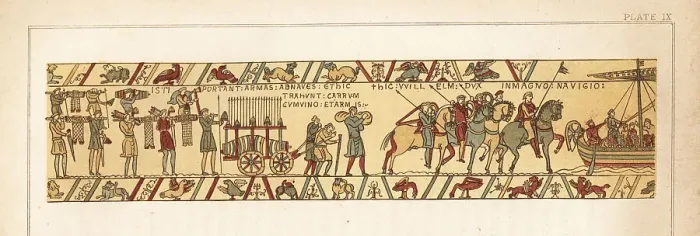 PLATE IX
ISTI PORTANT: ARMAS: ADNAVES: ETHIC
TRAHUNT: CARRUM
CUMVINO: ETARMIS:-
†HIC: VVILL ELM: DUX INMAGNO: NAVIGIO: